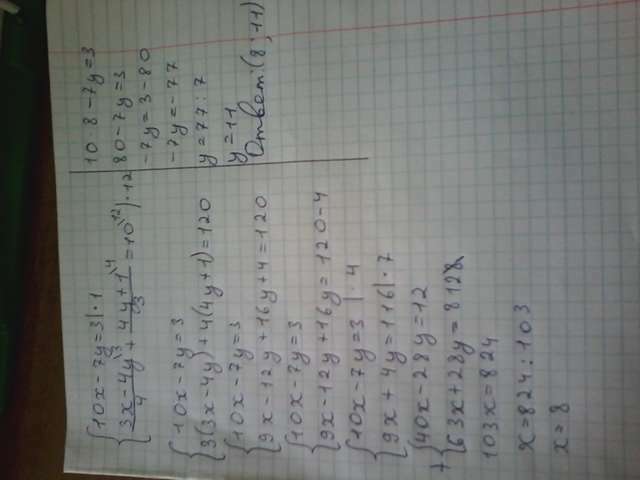 {10x - 7y = 3 | · 1
{3x - 4y\3 / 4 + 4y + 1\4 / 3 = 10\12 | · 12
{10x - 7y = 3
{3(3x - 4y) + 4(4y + 1) = 120
{10x - 7y = 3
{9x - 12y + 16y + 4 = 120
{10x - 7y = 3
{9x - 12y + 16y = 120 - 4
{10x - 7y = 3 | · 4
{9x + 4y = 116 | · 7
+ {40x - 28y = 12
{63x + 28y = 812
103x = 824
x = 824 : 103
x = 8
10 · 8 - 7y = 3
80 - 7y = 3
-7y = 3 - 80
-7y = -77
y = 77 : 7
y = 11
Ответ: (8 ; 11)